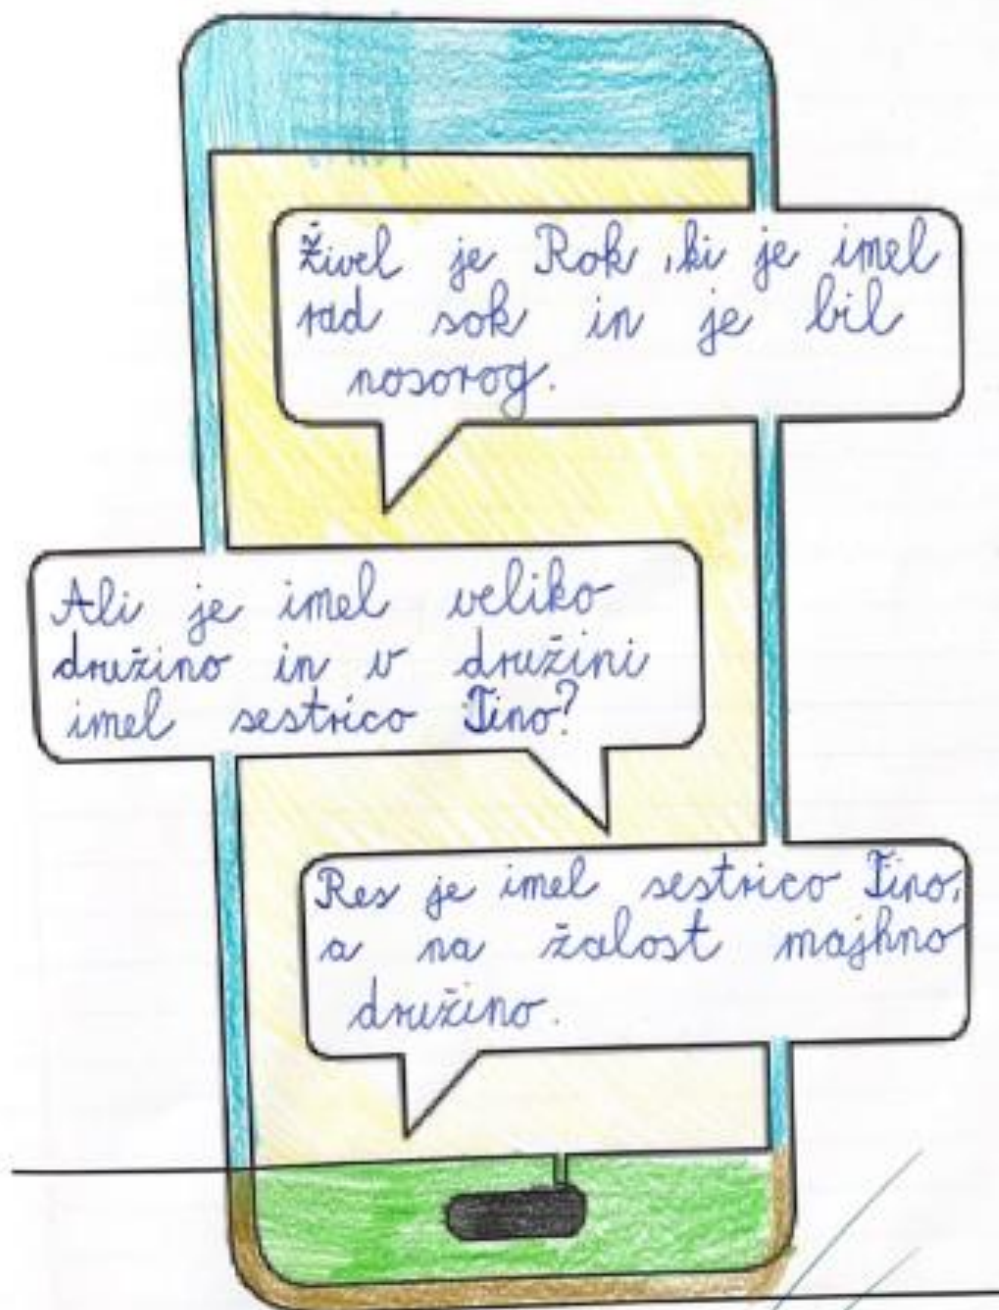 Živel je Rok, ki je imel
rad sok in je bil
nosorog.
Ali je imel veliko
družino in v družini
imel sestrico Tino?
Res je imel sestrico Tino,
a na žalost majhno
družino.